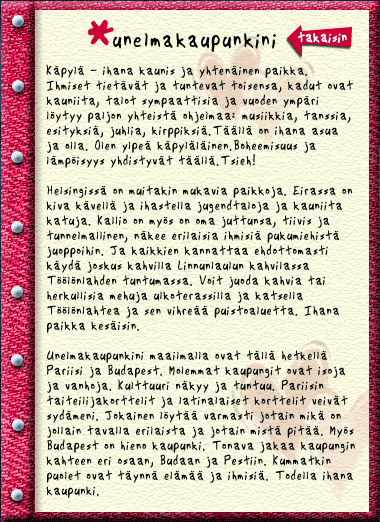 *unelmakaupunkini
takaisin
Käpylä - ihana kaunis ja yhtenäinen paikka.
Ihmiset tietävät ja tuntevat toisensa, kadut ovat
kauniita, talot sympaattisia ja vuoden ympäri
löytyy paljon yhteistä ohjelmaa: musiikkia, tanssia,
esityksiä, juhlia, kirppiksiä.Täällä on ihana asua
ja olla. Olen ylpeä käpyläläinen.Boheemisuus ja
lämpöisyys yhdistyvät täällä.Tsieh!
Helsingissä on muitakin mukavia paikkoja. Eirassa on
kiva kävellä ja ihastella jugendtaloja ja kauniita
katuja. Kallio on myös on oma juttunsa, tiivis ja
tunnelmallinen, näkee erilaisia ihmisiä pukumiehistä
juoppoihin. Ja kaikkien kannattaa ehdottomasti
käydä joskus kahvilla Linnunlaulun kahvilassa
Töölönlahden tuntumassa. Voit juoda kahvia tai
herkullisia mehuja ulkoterassilla ja katsella
Töölönlahtea ja sen vihreää puistoaluetta. Ihana
paikka kesäisin.
Unelmakaupunkini maailmalla ovat tällä hetkellä
Pariisi ja Budapest. Molemmat kaupungit ovat isoja
ja vanhoja. Kulttuuri näkyy ja tuntuu. Pariisin
taiteilijakorttelit ja latinalaiset korttelit veivät
sydämeni. Jokainen löytää varmasti jotain mikä on
jollain tavalla erilaista ja jotain mistä pitää. Myös
Budapest on hieno kaupunki. Tonava jakaa kaupungin
kahteen eri osaan, Budaan ja Pestiin. Kummatkin
puolet ovat täynnä elämää ja ihmisiä. Todella ihana
kaupunki.